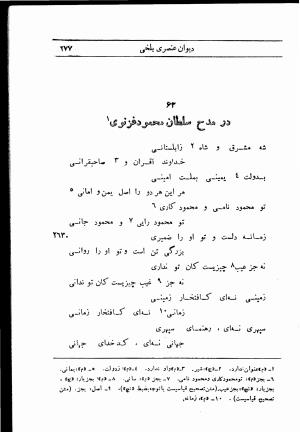 دیوان عنصری بلخی ۲۷۷
۶۳
در مدح سلطان محمود غزنوی۱
شه مشرق و شاه ۲ زابلستانی
خداوند اقران و ۳ صاحبقرانی
بدولت ۴ یمینی بملت امینی
مر این هر دو را اصل یمن و امانی ۵
تو محمود نامی و محمود کاری ۶
تو محمود رایی ۷ و محمود جانی
زمانه دلست و تو او را ضمیری ۲۶۳۰
بزرگی تن است و تو او را روانی
نه جز عیب۸ چیزیست کان تو نداری
نه جز ۹ غیب چیزیست کان تو ندانی
زمینی نه‌ای کافتخار زمینی
زمانی۱۰ نه‌ای کافتخار زمانی
سپهری نه‌ای ، رهنمای سپهری
جهانی نه‌ای ، کدخدای جهانی